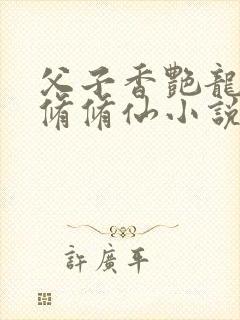 父子香艷龍
脩脩仙小說
許廣平